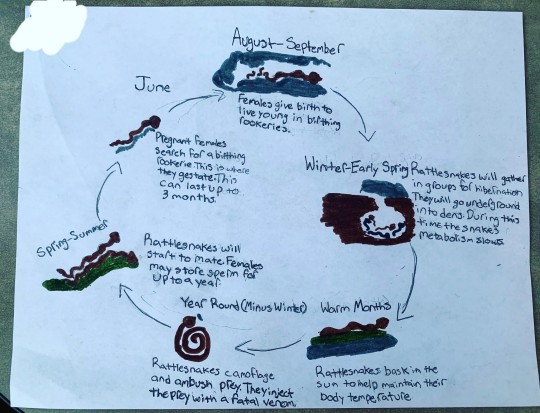 August-September
Females give birth to
live young in birthing
rookeries.
Winter-Early Spring
Rattlesnakes will gather
in groups for hibernation
They will go underground
into dens. During this
time the snakes
metabolism slows.
Warm Months
Rattlesnakes bask in the
sun to help maintain their
body temperature
Year Round (Minus Winter)
Rattlesnakes camoflage
and ambush prey. They inject
the prey with a fatal venom.
Spring-Summer
Rattlesnakes will
start to mate. Females
may store sperm for
up to a year.
June
Pregnant females
search for a birthing
rookerie. This is where
they gestate. This
can last up to
3 months.